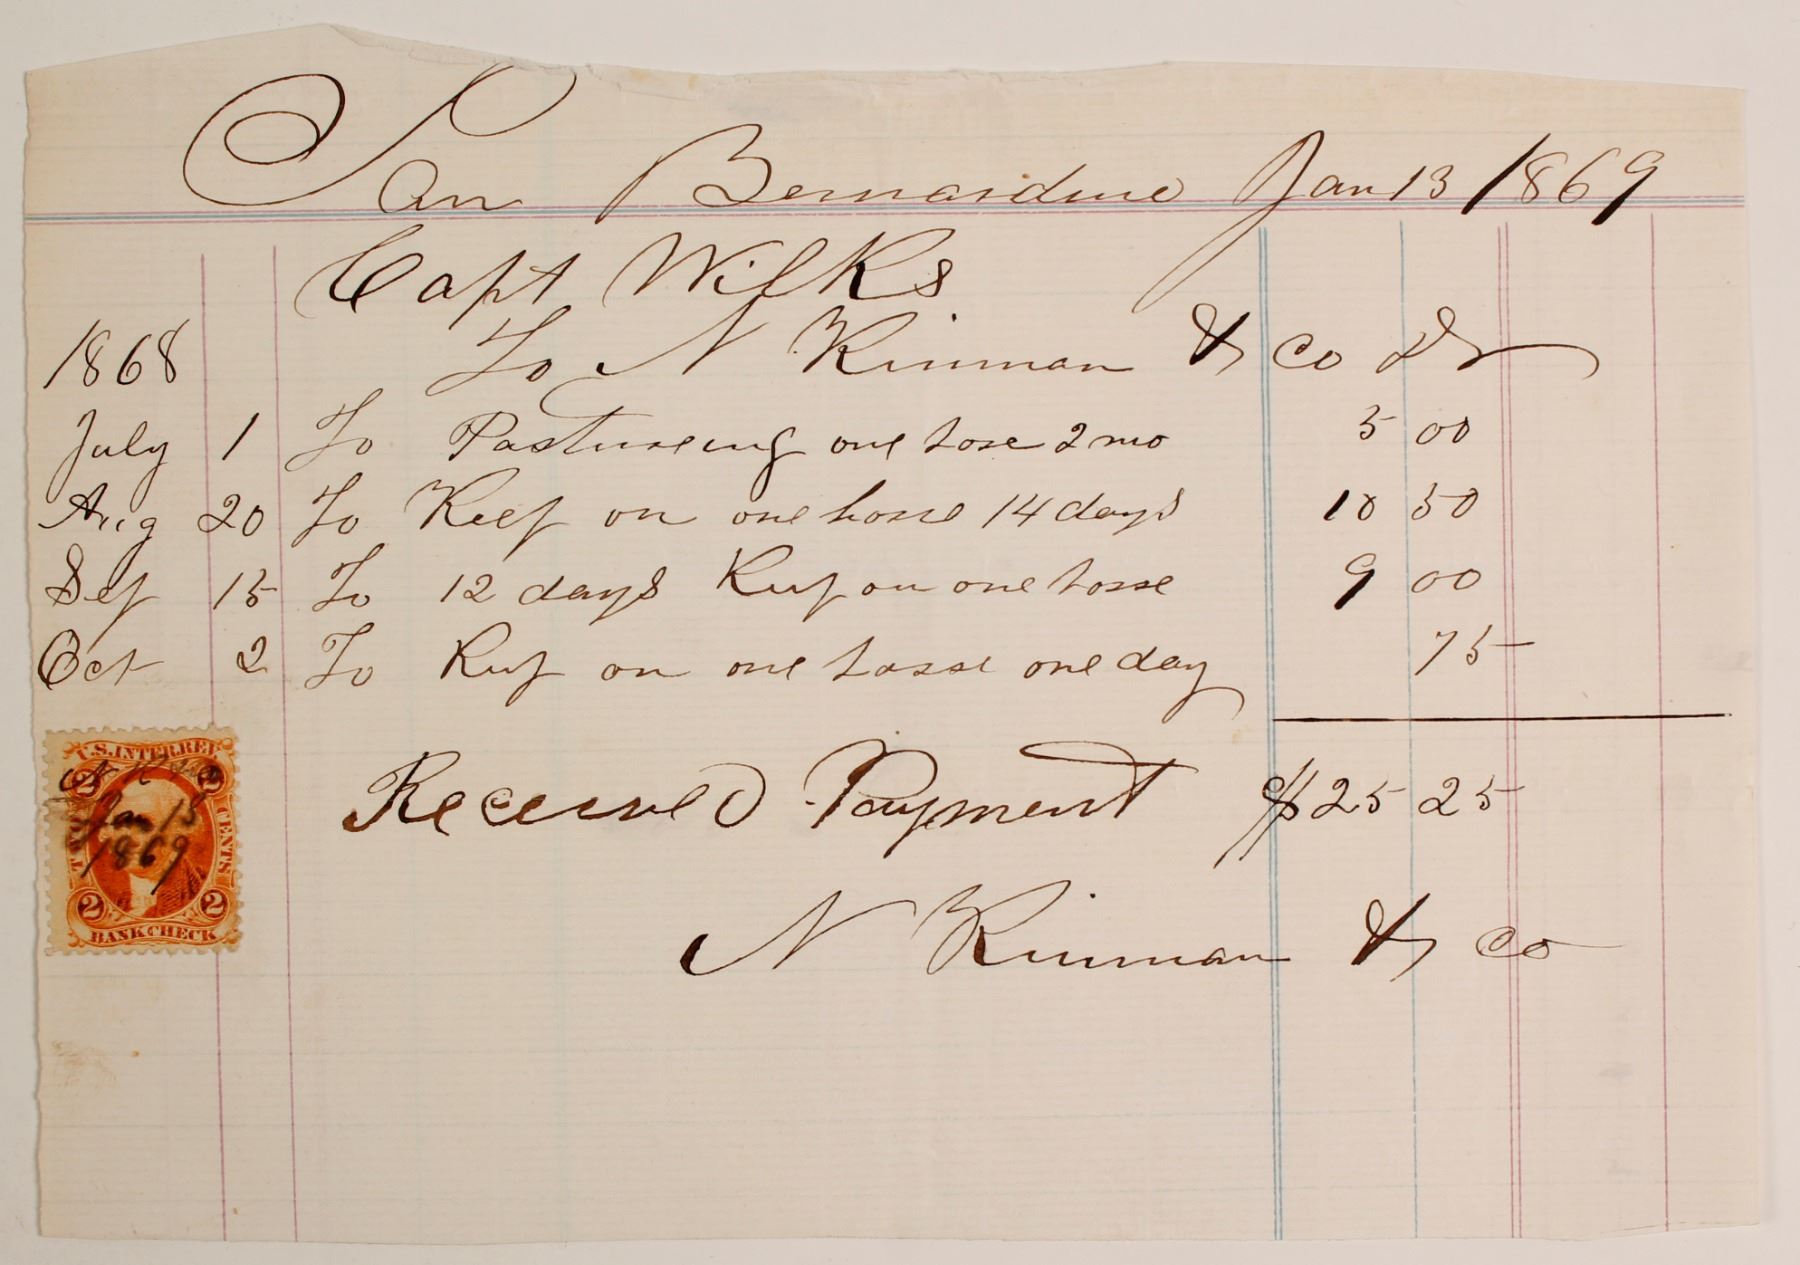 San Bernardino Jan 13 1869
Capt Wilks
1868 To N Kinman & Co Dr
July 1 To Pastureing one hose 2 mo 5 00
Aug 20 To Keep on one horse 14 days 10 50
Sep 15 To 12 days Keep on one hosse 9 00
Oct 2 To Keep on one hosse one day 75
Received Payment $25 25
N Kinman & Co
U.S. INTER. REV.
2 2
Jan 13
1869
TWO CENTS
2 2
BANK CHECK